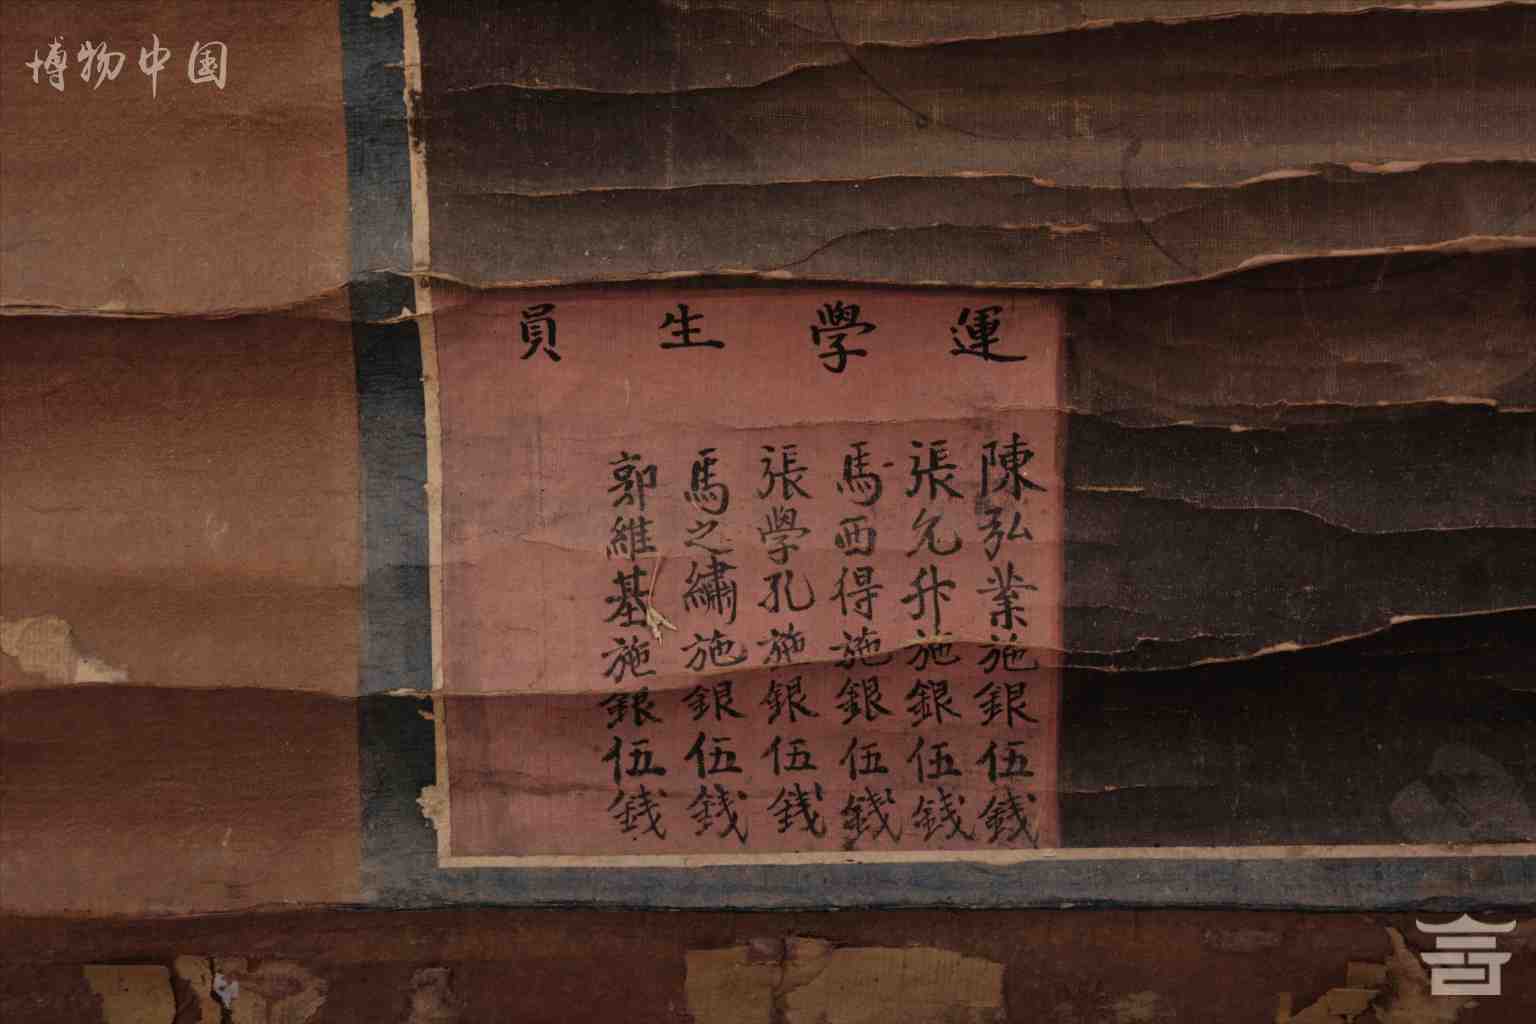 博物中国
運學生員
陳弘業施銀伍錢
張允升施銀伍錢
馬西得施銀伍錢
張學孔施銀伍錢
馬之繡施銀伍錢
郭維基施銀伍錢